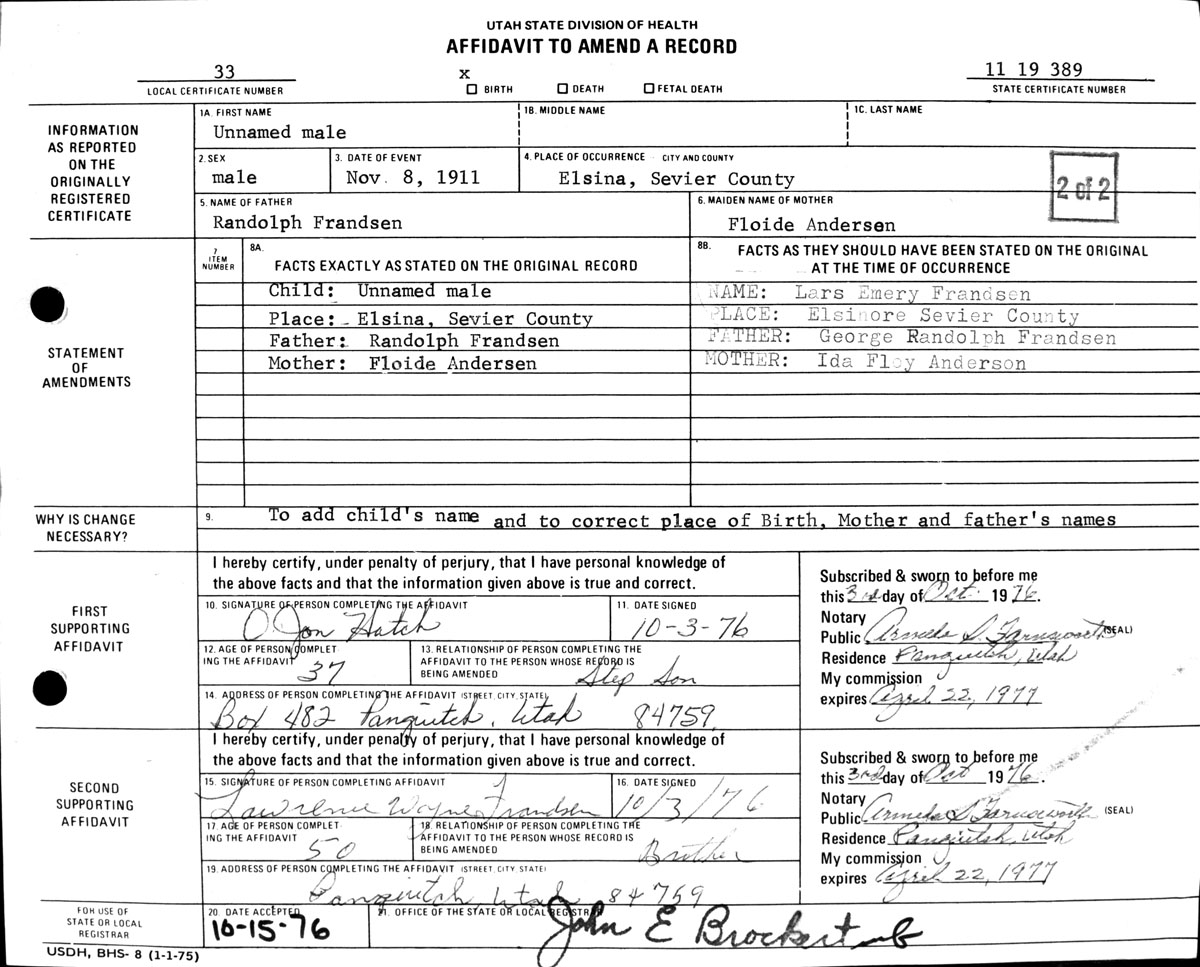 UTAH STATE DIVISION OF HEALTH
AFFIDAVIT TO AMEND A RECORD
33
LOCAL CERTIFICATE NUMBER
X
☐ BIRTH ☐ DEATH ☐ FETAL DEATH
11 19 389
STATE CERTIFICATE NUMBER
INFORMATION
AS REPORTED
ON THE
ORIGINALLY
REGISTERED
CERTIFICATE
1A. FIRST NAME
Unnamed male
1B. MIDDLE NAME
1C. LAST NAME
2. SEX
male
3. DATE OF EVENT
Nov. 8, 1911
4. PLACE OF OCCURRENCE - CITY AND COUNTY
Elsina, Sevier County
2 of 2
5. NAME OF FATHER
Randolph Frandsen
6. MAIDEN NAME OF MOTHER
Floide Andersen
STATEMENT
OF
AMENDMENTS
7
ITEM
NUMBER
8A.
FACTS EXACTLY AS STATED ON THE ORIGINAL RECORD
8B.
FACTS AS THEY SHOULD HAVE BEEN STATED ON THE ORIGINAL
AT THE TIME OF OCCURRENCE
Child: Unnamed male
NAME: Lars Emery Frandsen
Place: Elsina, Sevier County
PLACE: Elsinore Sevier County
Father: Randolph Frandsen
FATHER: George Randolph Frandsen
Mother: Floide Andersen
MOTHER: Ida Floy Anderson
WHY IS CHANGE
NECESSARY?
9.
To add child's name and to correct place of Birth, Mother and father's names
FIRST
SUPPORTING
AFFIDAVIT
I hereby certify, under penalty of perjury, that I have personal knowledge of
the above facts and that the information given above is true and correct.
10. SIGNATURE OF PERSON COMPLETING THE AFFIDAVIT
O Jon Hatch
11. DATE SIGNED
10-3-76
12. AGE OF PERSON COMPLET-
ING THE AFFIDAVIT
37
13. RELATIONSHIP OF PERSON COMPLETING THE
AFFIDAVIT TO THE PERSON WHOSE RECORD IS
BEING AMENDED
Step Son
14. ADDRESS OF PERSON COMPLETING THE AFFIDAVIT (STREET, CITY, STATE)
Box 482 Panguitch, Utah 84759
Subscribed & sworn to before me
this 3rd day of Oct. 1976.
Notary
Public Armelda S. Farnsworth (SEAL)
Residence Panguitch, Utah
My commission
expires April 22, 1977
SECOND
SUPPORTING
AFFIDAVIT
I hereby certify, under penalty of perjury, that I have personal knowledge of
the above facts and that the information given above is true and correct.
15. SIGNATURE OF PERSON COMPLETING AFFIDAVIT
Lawrence Wayne Frandsen
16. DATE SIGNED
10/3/76
17. AGE OF PERSON COMPLET-
ING THE AFFIDAVIT
50
18. RELATIONSHIP OF PERSON COMPLETING THE
AFFIDAVIT TO THE PERSON WHOSE RECORD IS
BEING AMENDED
Brother
19. ADDRESS OF PERSON COMPLETING THE AFFIDAVIT (STREET, CITY, STATE)
Panguitch, Utah 84759
Subscribed & sworn to before me
this 3rd day of Oct 1976.
Notary
Public Armelda S. Farnsworth (SEAL)
Residence Panguitch, Utah
My commission
expires April 22, 1977
FOR USE OF
STATE OR LOCAL
REGISTRAR
20. DATE ACCEPTED
10-15-76
21. OFFICE OF THE STATE OR LOCAL REGISTRAR
John E Brockert
USDH, BHS- 8 (1-1-75)